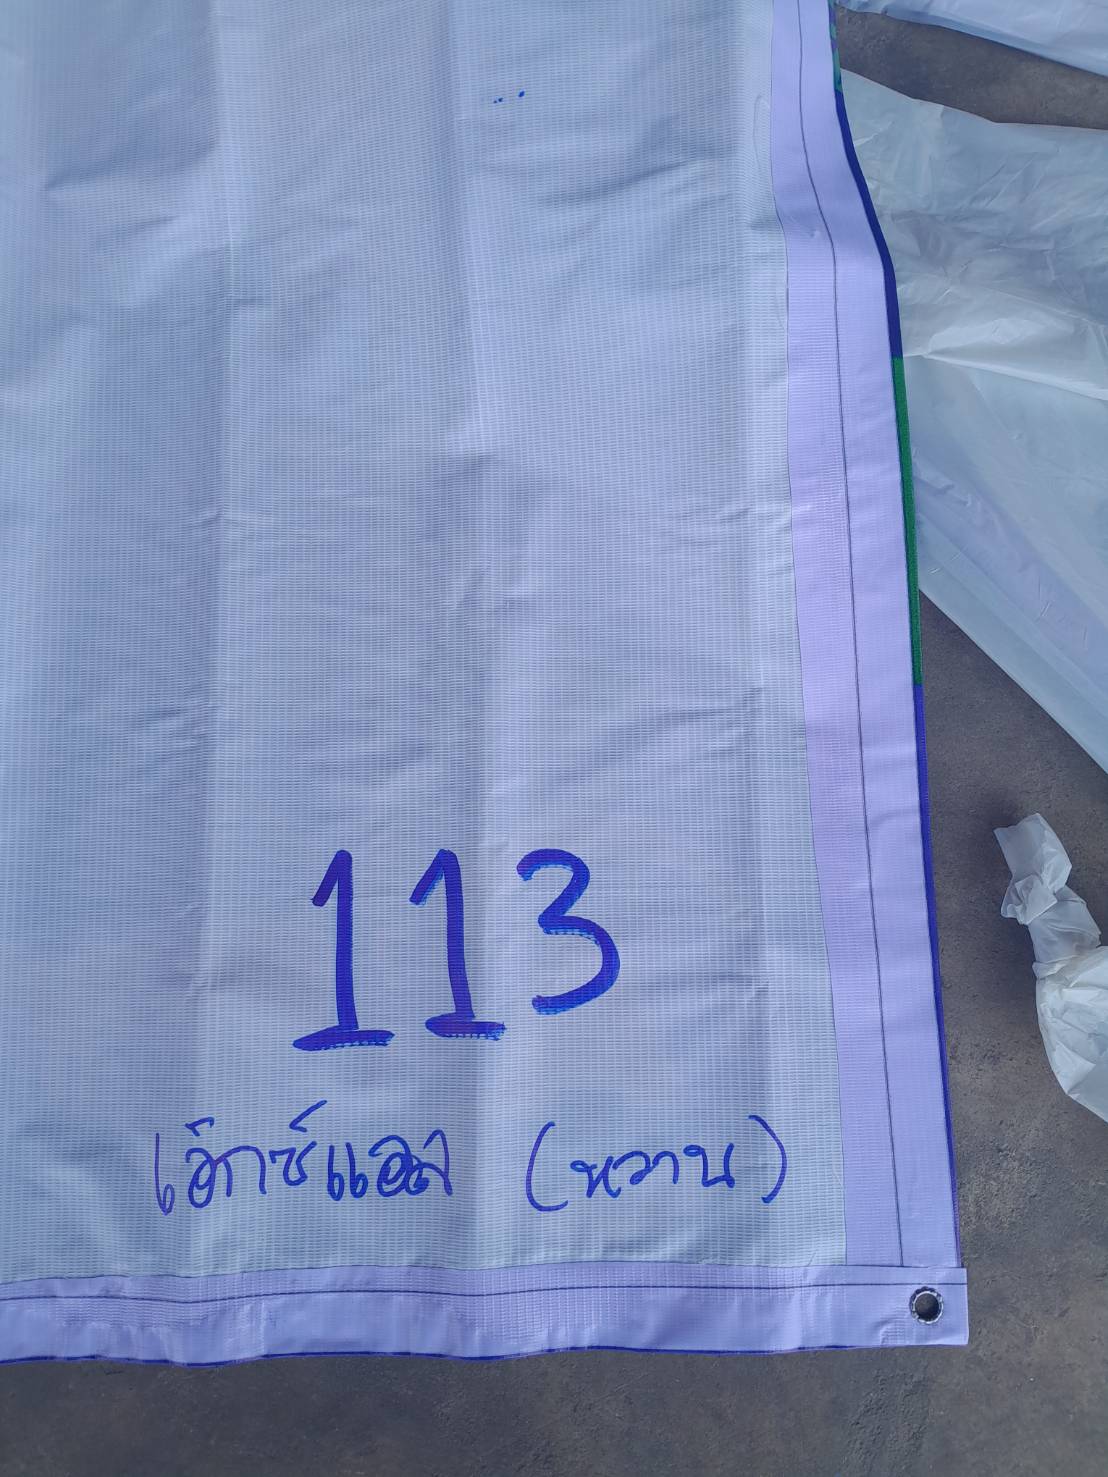 113
เอ็กซ์แอล (หวาน)